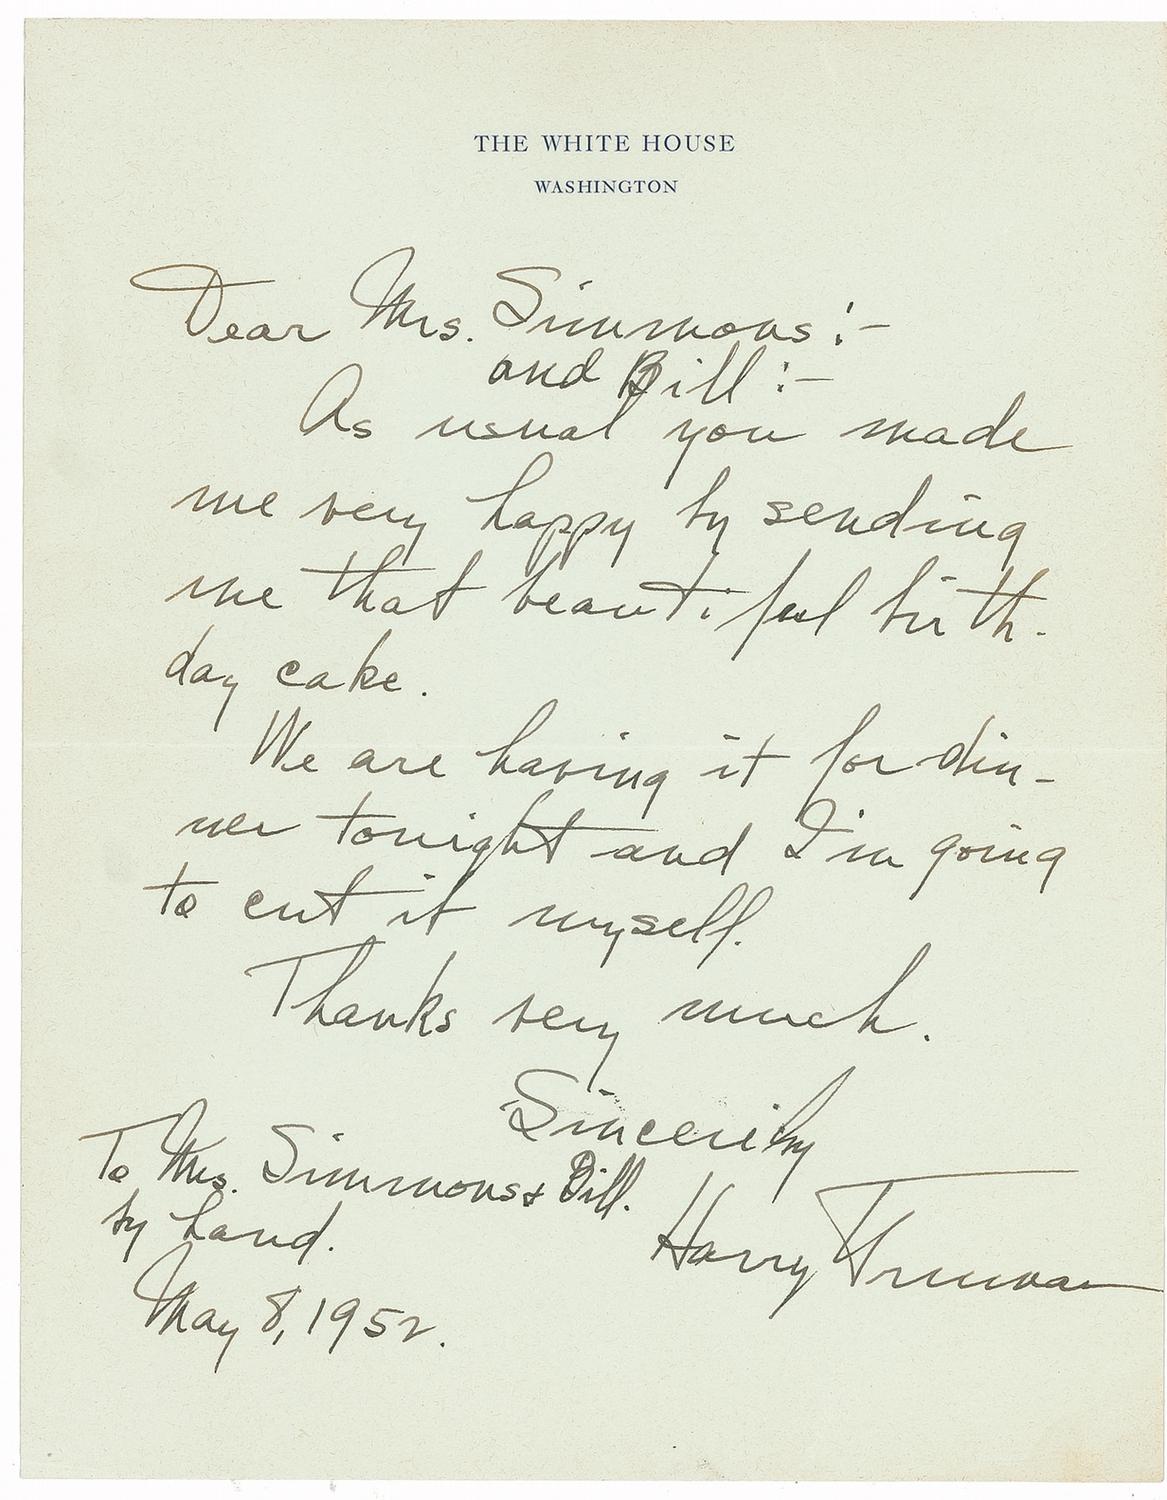 THE WHITE HOUSE
WASHINGTON
Dear Mrs. Simmons:-
and Bill:-
As usual you made
me very happy by sending
me that beautiful birth-
day cake.
We are having it for din-
ner tonight and I'm going
to cut it myself.
Thanks very much.
Sincerely
Harry Truman
To Mrs. Simmons & Bill.
by hand.
May 8, 1952.